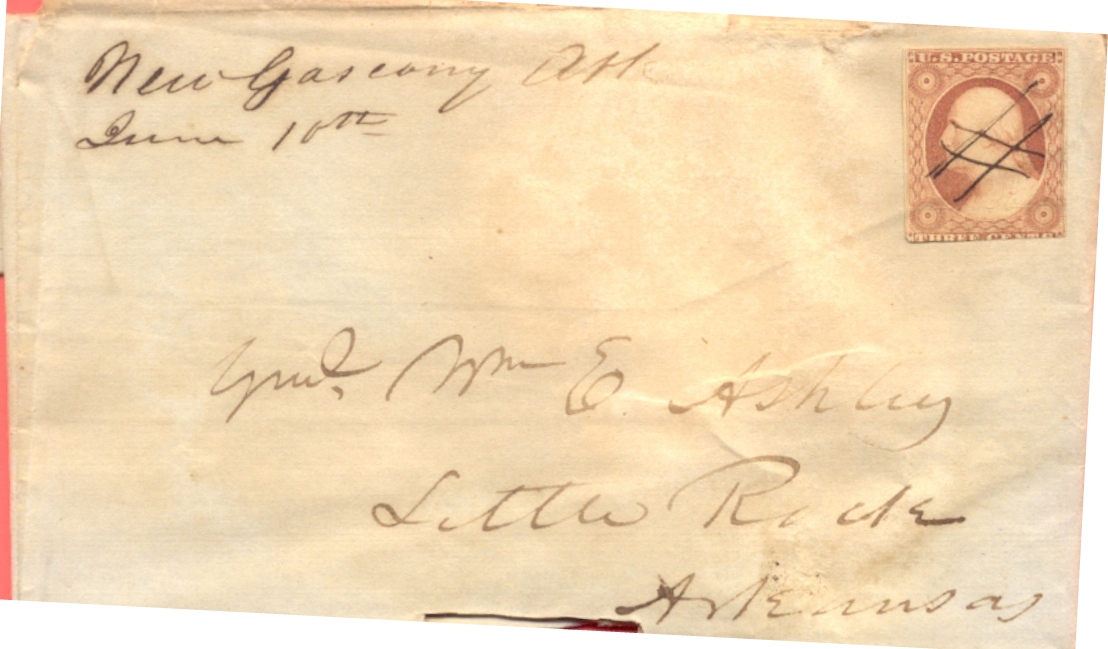 New Gascony Ark
June 10th
U.S. POSTAGE
THREE CENTS
Genl. Wm E. Ashley
Little Rock
Arkansas